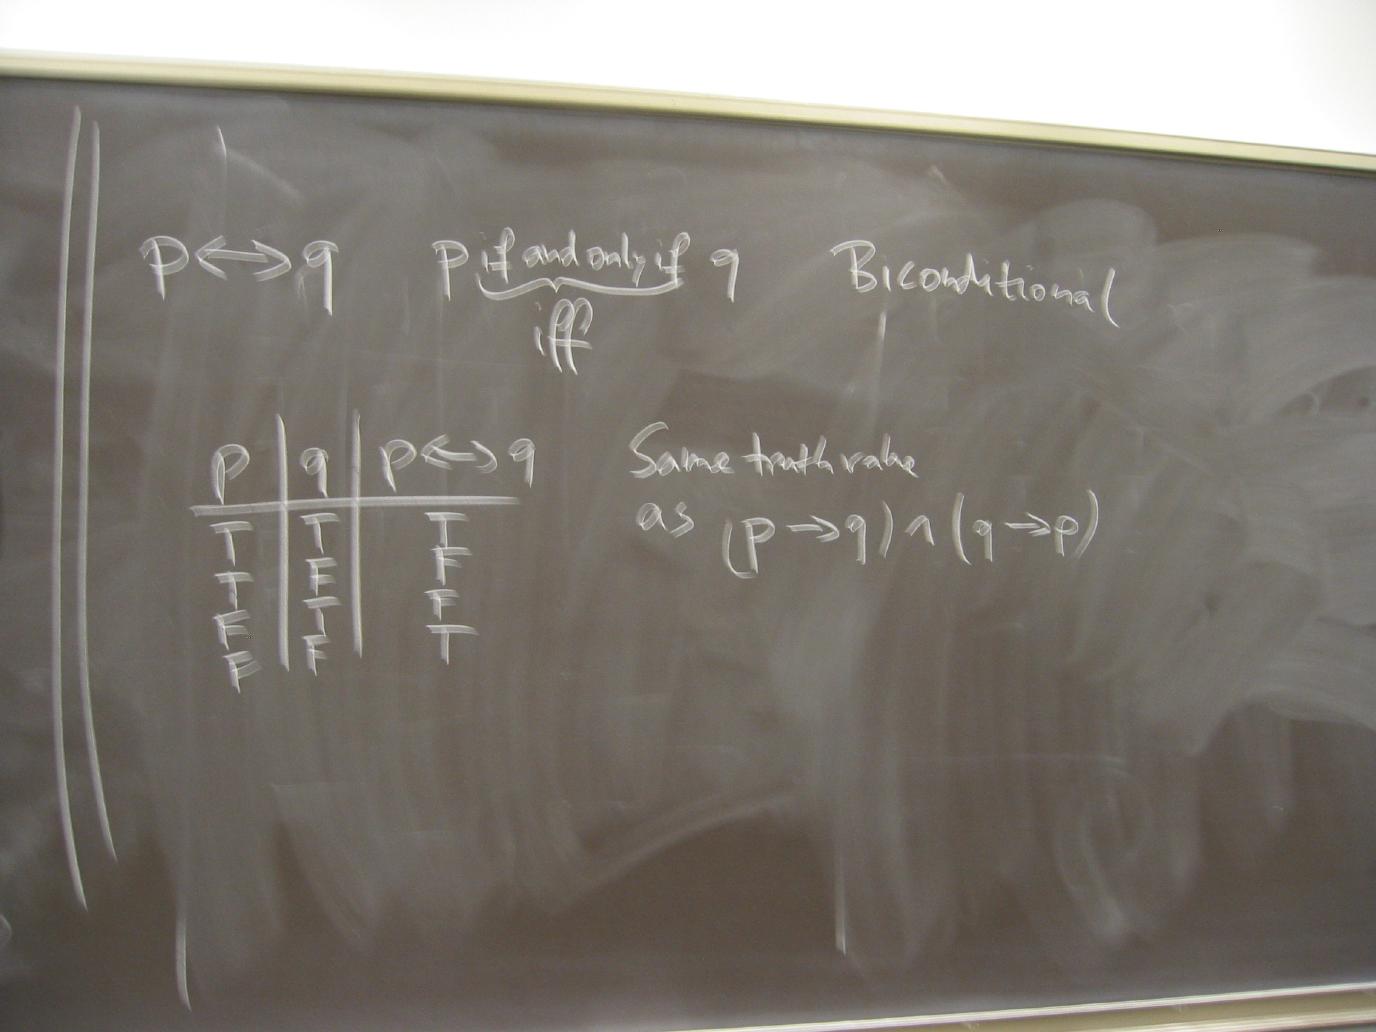 p ↔ q p if and only if q Biconditional
iff
p q p ↔ q
T T T
T F F
F T F
F F T
Same truth value
as (p → q) ∧ (q → p)